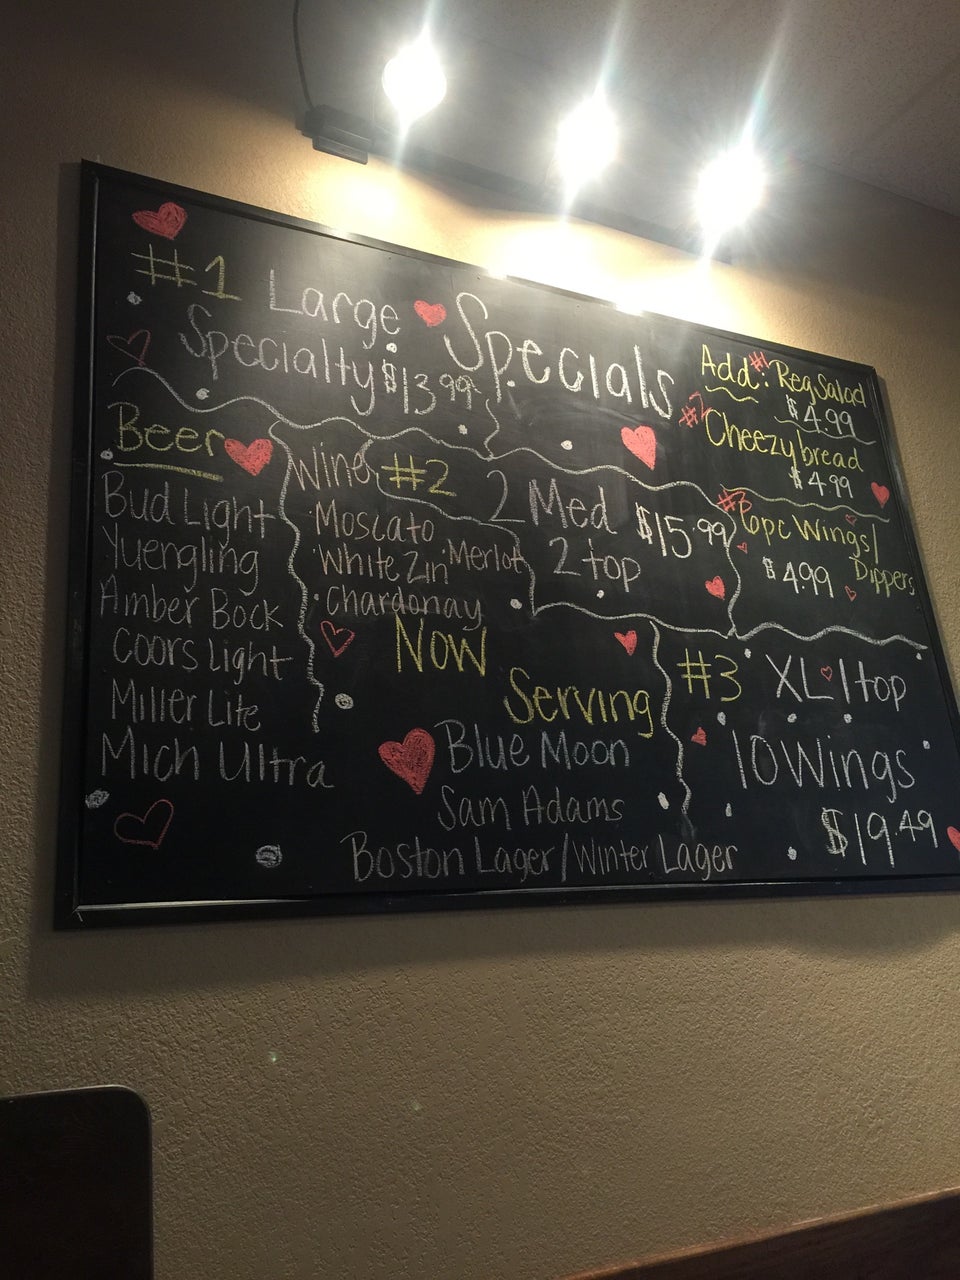 #1 Large
Specialty $13.99
Specials
Add: #1 Reg Salad
$4.99
#2 Cheezybread
$4.99
#3 6pc Wings/
Dippers
$4.99
Beer
Bud Light
Yuengling
Amber Bock
Coors Light
Miller Lite
Mich Ultra
Wine
Moscato
White Zin Merlot
Chardonay
#2
2 Med
2 top
$15.99
Now
Serving
Blue Moon
Sam Adams
Boston Lager/Winter Lager
#3 XL 1 top
10 Wings
$19.49